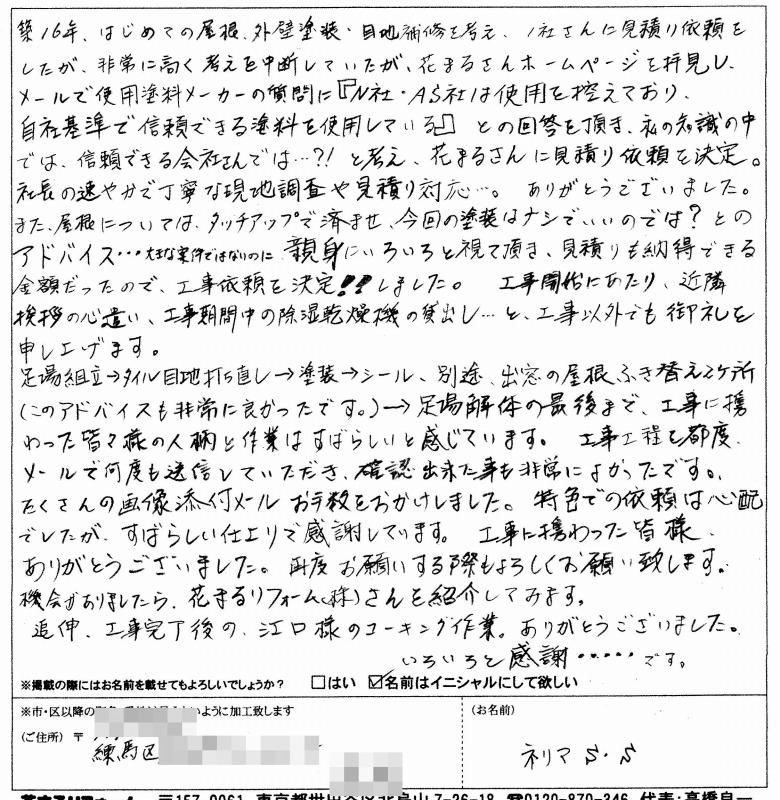 築16年、はじめての屋根、外壁塗装・目地補修を考え、1社さんに見積り依頼を
したが、非常に高く考えを中断していたが、花まるさんホームページを拝見し、
メールで使用塗料メーカーの質問に『N社・AS社は使用を控えており、
自社基準で信頼できる塗料を使用している』との回答を頂き、私の知識の中
では、信頼できる会社さんでは…?!と考え、花まるさんに見積り依頼を決定。
社長の速やかで丁寧な現地調査や見積り対応…。ありがとうございました。
また、屋根については、タッチアップで済ませ、今回の塗装はナシでいいのでは?との
アドバイス…大きな案件ではないのに親身にいろいろと視て頂き、見積りも納得できる
金額だったので、工事依頼を決定!!しました。工事開始にあたり、近隣
挨拶の心遣い、工事期間中の除湿乾燥機の貸出し…と、工事以外でも御礼を
申し上げます。
足場組立→タイル目地打ち直し→塗装→シール、別途、出窓の屋根ふき替え2ケ所
(このアドバイスも非常に良かったです。)→足場解体の最後まで、工事に携
わった皆々様の人柄と作業はすばらしいと感じています。工事工程を都度、
メールで何度も送信していただき、確認出来た事も非常によかったです。
たくさんの画像添付メールお手数をおかけしました。特色での依頼は心配
でしたが、すばらしい仕上りで感謝しています。工事に携わった皆様、
ありがとうございました。再度お願いする際もよろしくお願い致します。
機会がありましたら、花まるリフォーム(株)さんを紹介してみます。
追伸、工事完了後の、江口様のコーキング作業。ありがとうございました。
いろいろと感謝……です。
※掲載の際にはお名前を載せてもよろしいでしょうか? □はい ☑名前はイニシャルにして欲しい
※市・区以降の ように加工致します (お名前)
(ご住所) 〒
練馬区
ネリマ S・S
〒157-0061 東京都世田谷区北烏山7-26-18 ☎0120-870-346 代表:高橋良一